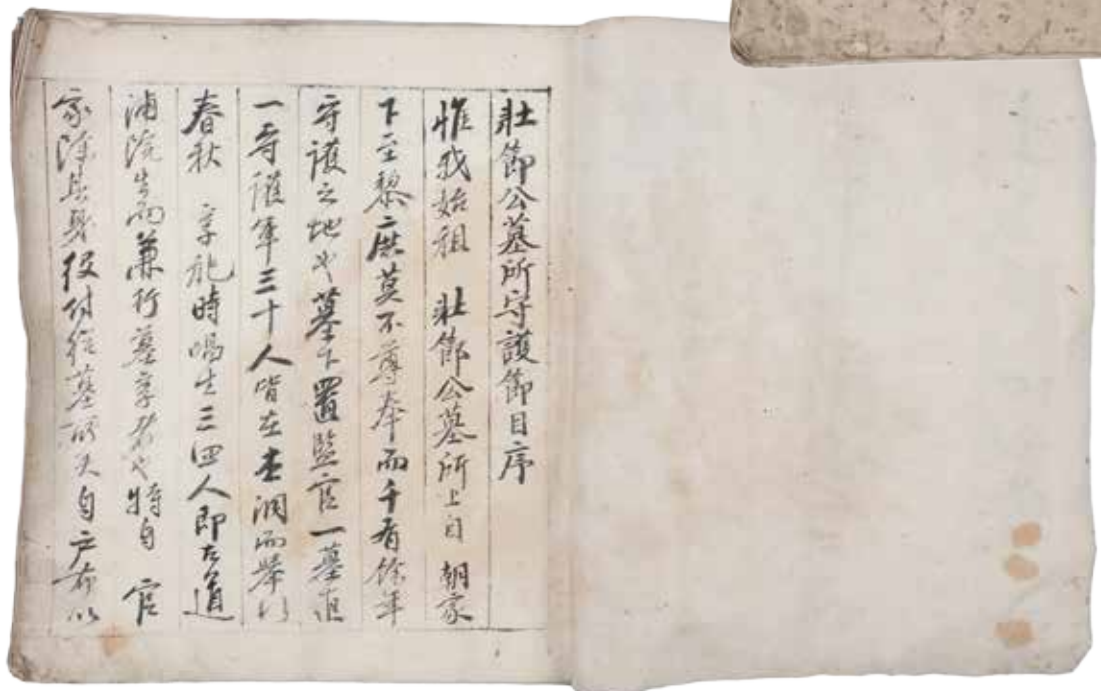 壯節公墓所守護節目序
惟我始祖 壯節公墓所上自 朝家
下至黎庶莫不尊奉而千有餘年
守護之地也墓下置監官一墓直
一守護軍三十人皆在本洞而擧行
春秋 享祀時唱生三四人即右道
浦院生而兼行墓享者也特自 官
家除其身役付徭墓所又自戶布以